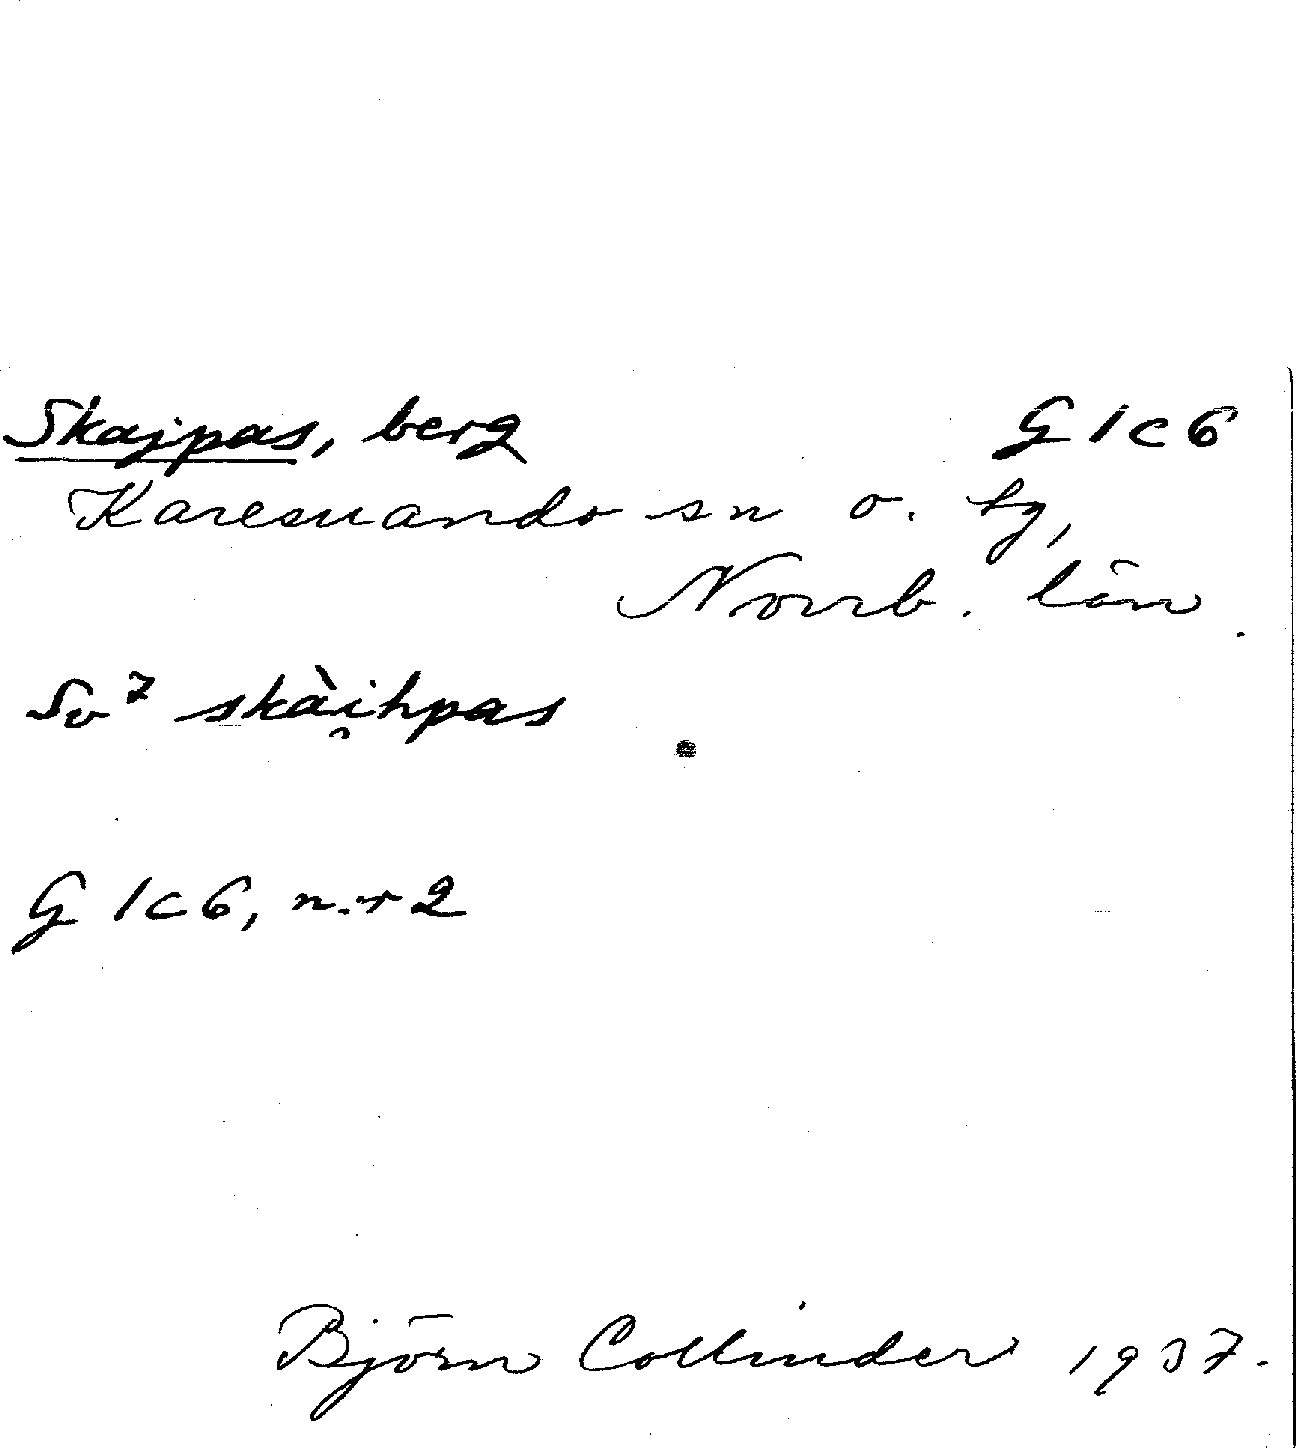 Skajpas, berg G 1 c 6
Karesuando sn o. tg,
Norrb. län.
Sv⁷ skài̯hpas
G 1 c 6, n:r 2
Björn Collinder 1937.